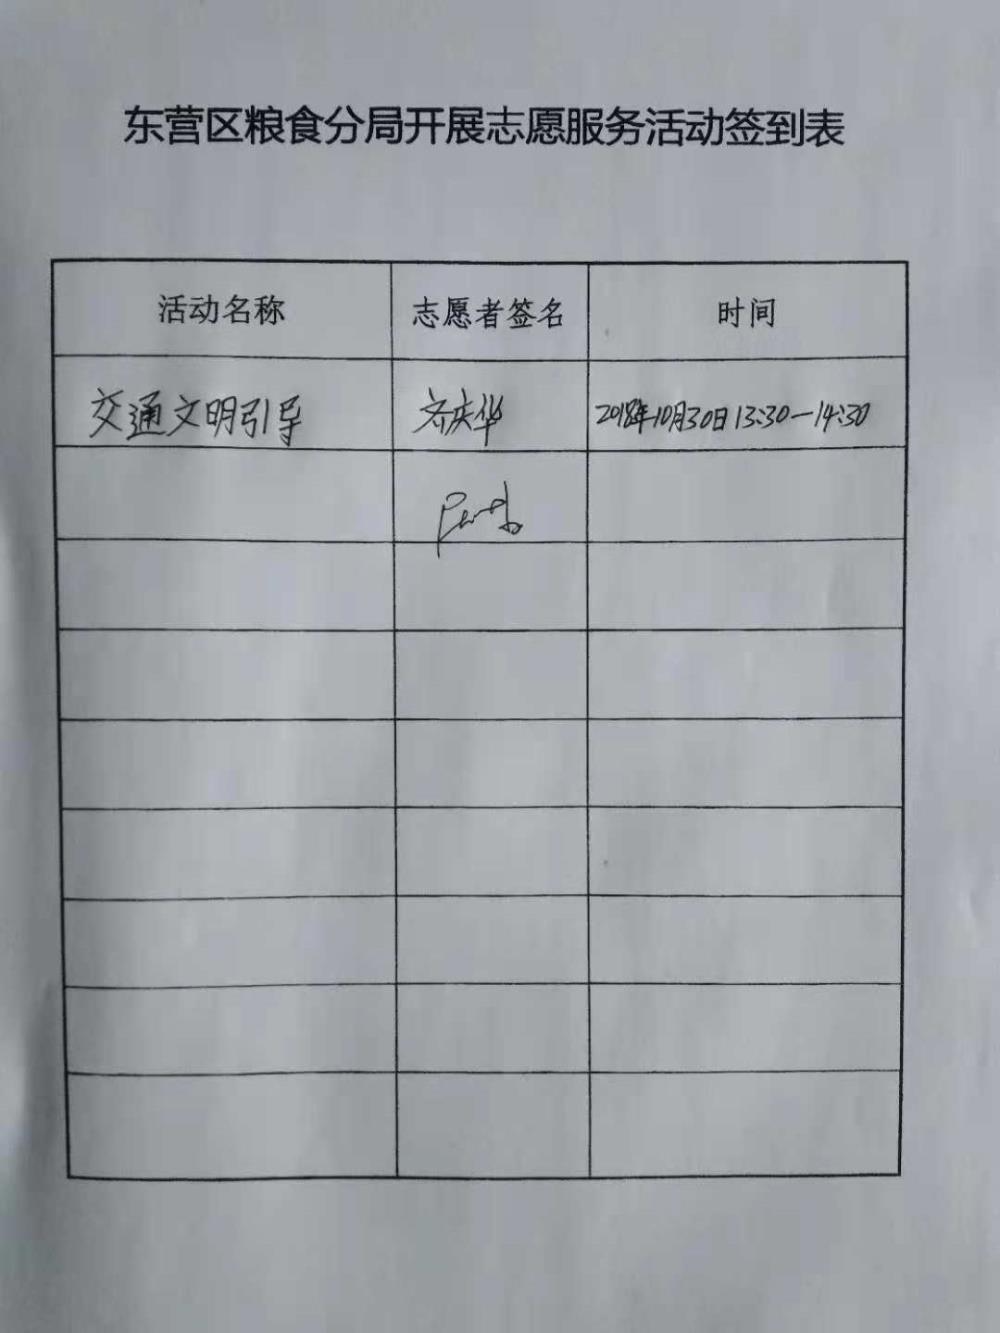 东营区粮食分局开展志愿服务活动签到表
活动名称 志愿者签名 时间
交通文明引导 齐庆华 2018年10月30日13:30—14:30